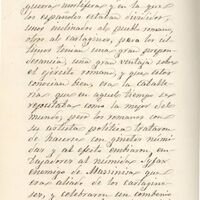 guerra mortifera y en la que
los españoles estaban divididos,
unos inclinados al pueblo romano
otros al cartagines, para los ul-
timos tenian una gran prepon-
derancia, una gran ventaja sobre
el ejército romano, y que estos
conocian bien, era la caballe-
ria que en aquel tiempo se
reputaba como la mejor del
mundo, pero los romanos con
su astuta política trataron
de hacerse con ginetes númidas
y al efecto enviaron, em-
bajadores al númida Syfax
enemigo de Massinisa que
era aliado de los cartagine-
ses, y celebraron un combenio